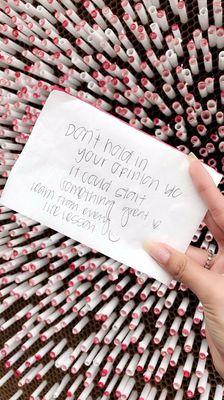 Don't hold in
your opinion uc
it could start
something great
learn from every
life lesson